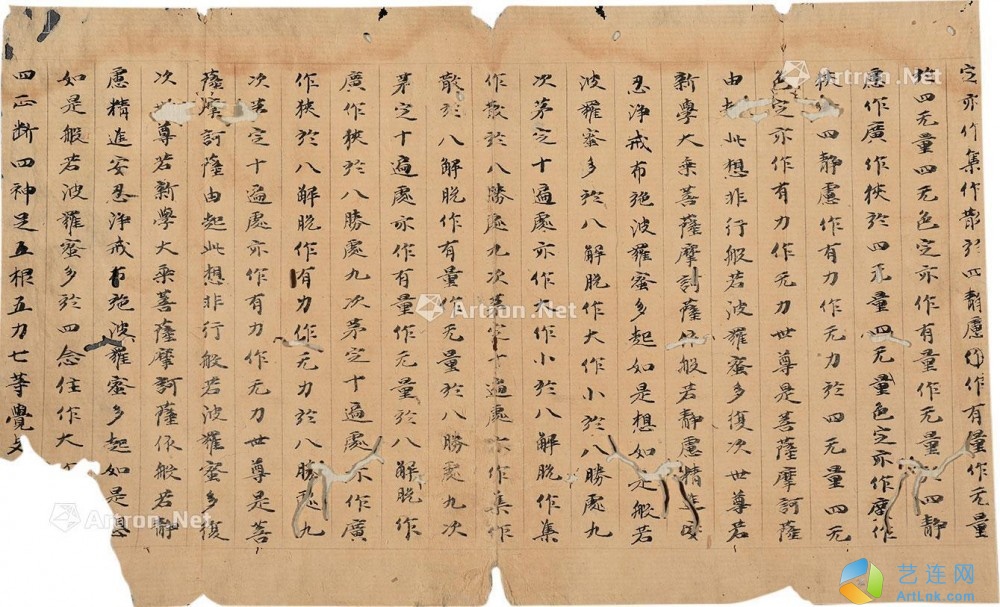 定亦作集作散於四靜慮作有量作无量
於四无量四无色定亦作有量作无量四靜
慮作廣作狹於四无量四无量色定亦作廣作
狹四靜慮作有力作无力於四无量四无
色定亦作有力作无力世尊是菩薩摩訶薩
由此想非行般若波羅蜜多復次世尊若
新學大乘菩薩摩訶薩依般若靜慮精進安
忍淨戒布施波羅蜜多起如是想如是般若
波羅蜜多於八解脫作大作小於八勝處九
次第定十遍處亦作大作小於八解脫作集
作散於八勝處九次第定十遍處亦作集作
散於八解脫作有量作无量於八勝處九次
第定十遍處亦作有量作无量於八解脫作
廣作狹於八勝處九次第定十遍處亦作廣
作狹於八解脫作有力作无力於八勝處九
次第定十遍處亦作有力作无力世尊是菩
薩摩訶薩由起此想非行般若波羅蜜多復
次尊若新學大乘菩薩摩訶薩依般若靜
慮精進安忍淨戒布施波羅蜜多起如是想
如是般若波羅蜜多於四念住作大
四正斷四神足五根五力七等覺支
Artron.Net
Artron.Net
Artron.Net
Artron.Net
Artron.Net
艺连网
ArtLnk.com